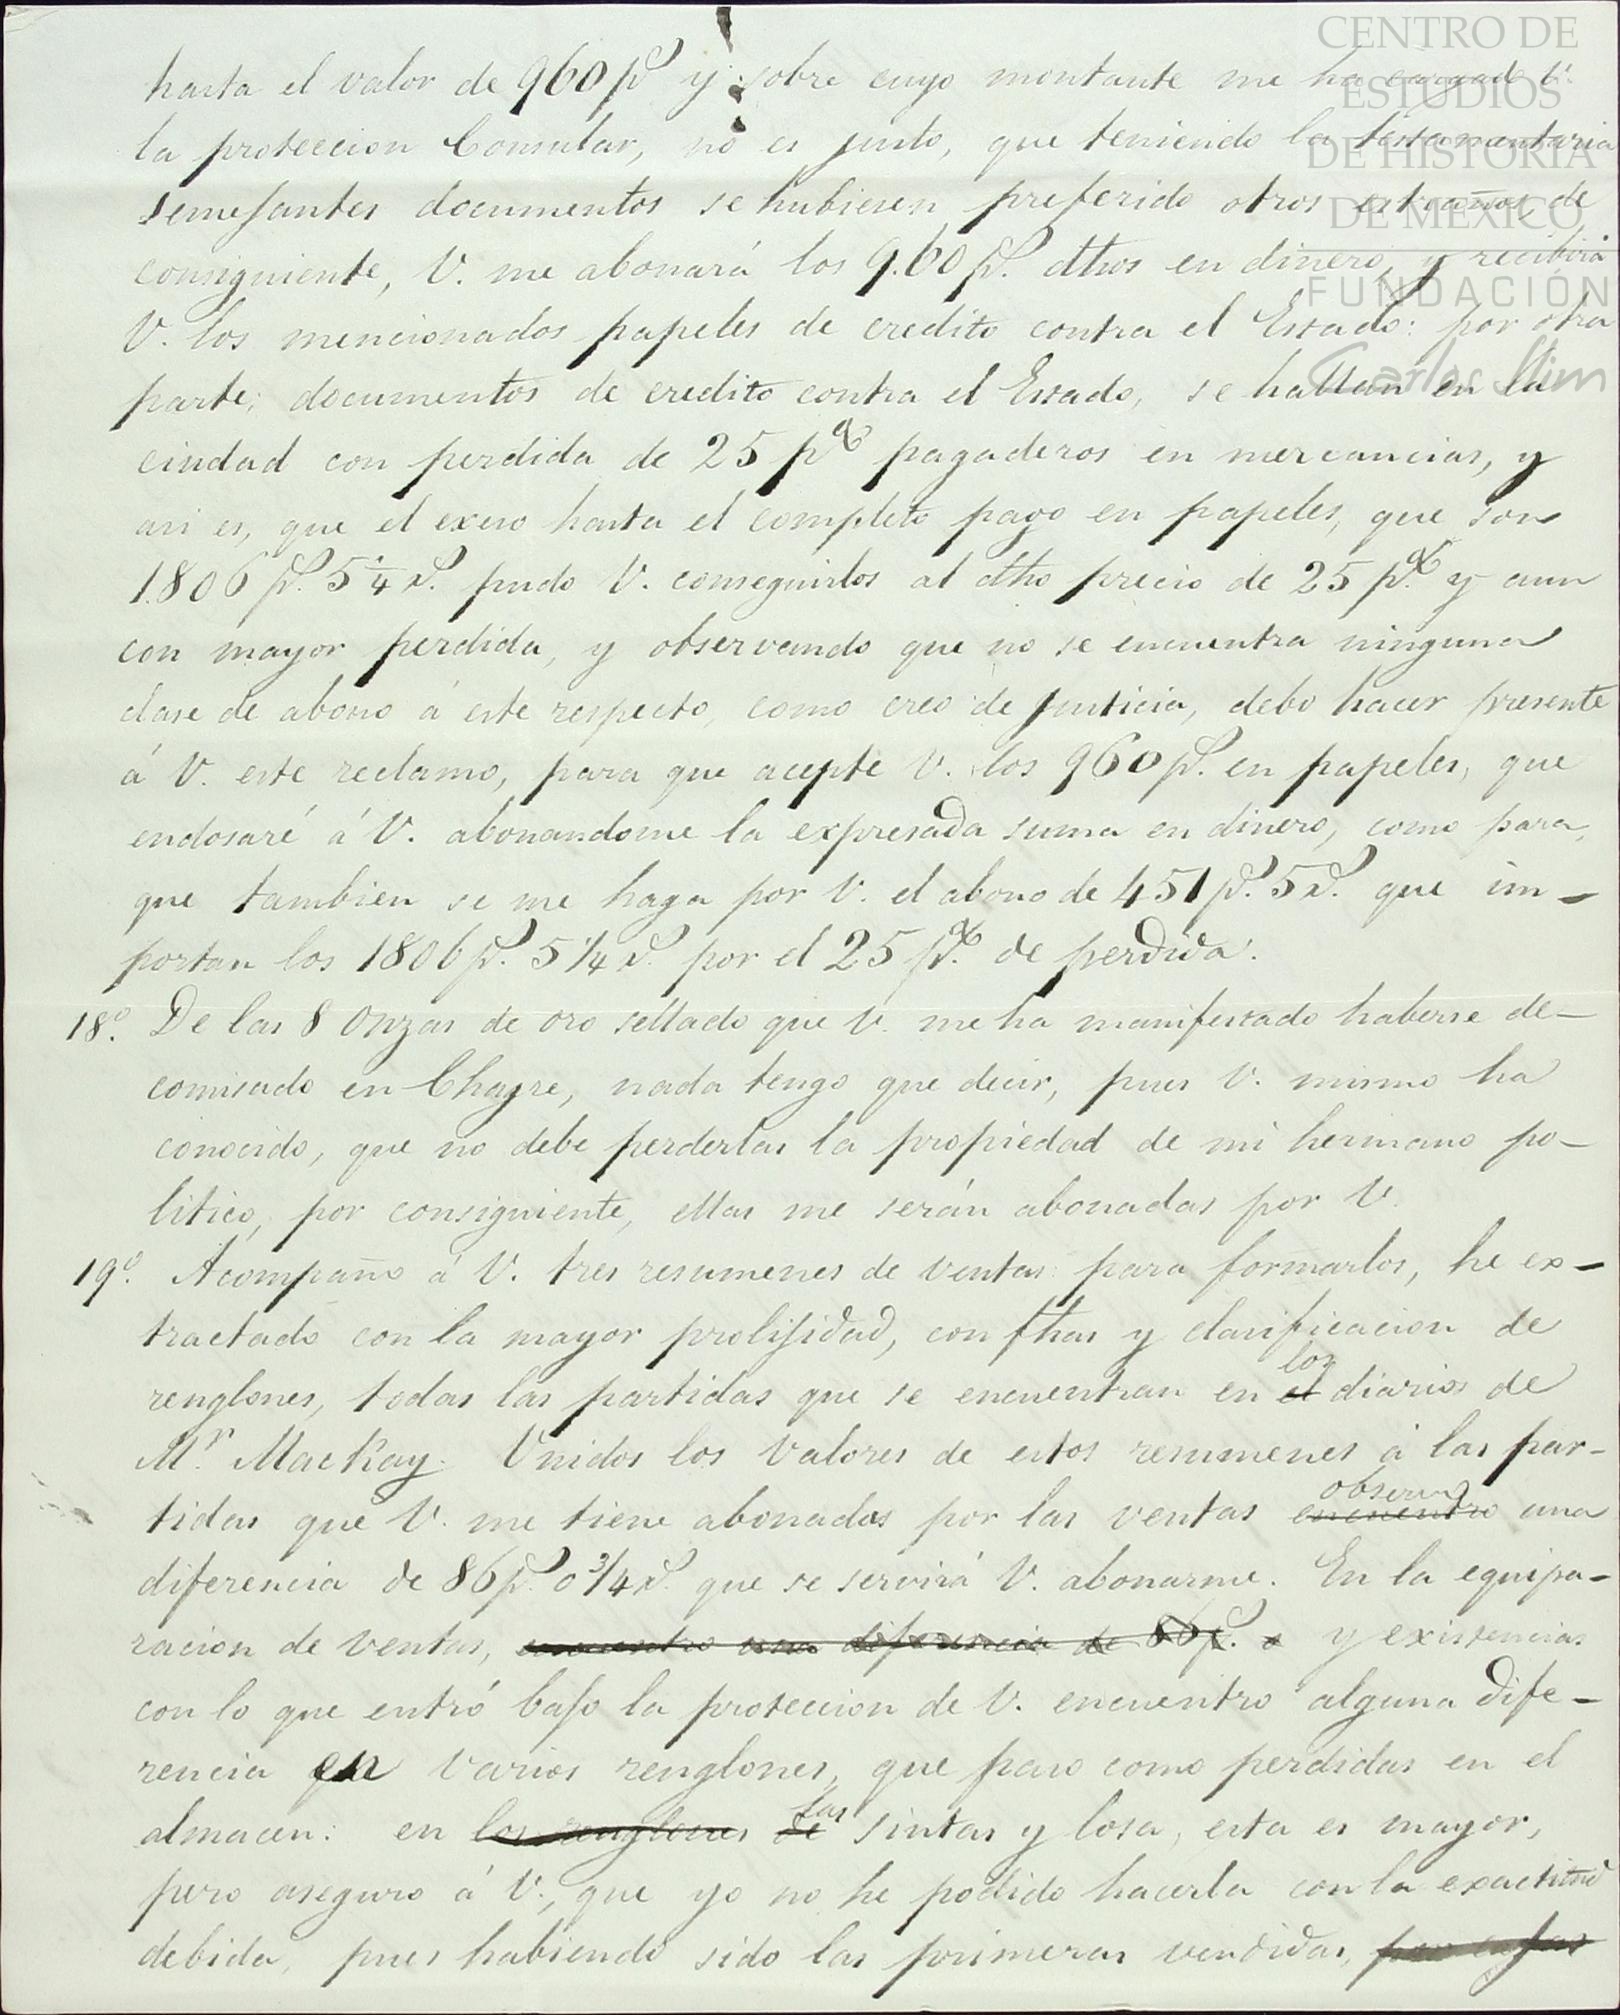 CENTRO DE
ESTUDIOS
DE HISTORIA
DE MÉXICO
FUNDACIÓN
Carlos Slim
hasta el valor de 960 p.s y sobre cuyo montante me ha cargado V.
la proteccion Consular, no es justo, que teniendo la testamentaria
semejantes documentos se hubiesen preferido otros estraños, de
consiguiente, V. me abonará los 960 p.s dhos en dinero, y recibirá
V. los mencionados papeles de credito contra el Estado: por otra
parte; documentos de credito contra el Estado, se hallan en la
ciudad con perdida de 25 p% pagaderos en mercancias, y
asi es, que el exeso hasta el completo pago en papeles, que son
1806 p.s 5 1/4 r.s pudo V. conseguirlos al dho precio de 25 p.% y aun
con mayor perdida, y observando que no se encuentra ninguna
clase de abono á este respecto, como creo de justicia, debo hacer presente
á V. este reclamo, para que acepte V. los 960 p.s en papeles, que
endosaré á V. abonandome la expresada suma en dinero, como para,
que tambien se me haga por V. el abono de 451 p.s 5 r.s que im-
portan los 1806 p.s 5 1/4 r.s por el 25 p.% de perdida.
18.º De las 8 Onzas de oro sellado que V. me ha manifestado haberse de-
comisado en Chagre, nada tengo que decir, pues V. mismo ha
conocido, que no debe perderlas la propiedad de mi hermano po-
litico, por consiguiente, ellas me serán abonadas por V.
19.º Acompaño á V. tres resumenes de ventas: para formarlos, he ex-
tractado con la mayor prolijidad, con fhas y clasificacion de
renglones, todas las partidas que se encuentran en el los diarios de
M.r MacKay. Unidos los valores de estos resumenes á las par-
tidas que V. me tiene abonadas por las ventas encuentro observo una
diferencia de 86 p.s 0 3/4 r.s que se servirá V. abonarme. En la equipa-
racion de ventas, encuentro una diferencia de 86 p.s 0 y existencias
con lo que entró bajo la proteccion de V. encuentro alguna dife-
rencia en varios renglones, que paso como perdidas en el
almacen: en los renglones de las sintas y losa, esta es mayor,
pero aseguro á V., que yo no he podido hacerla con la exactitud
debida, pues habiendo sido las primeras vendidas,